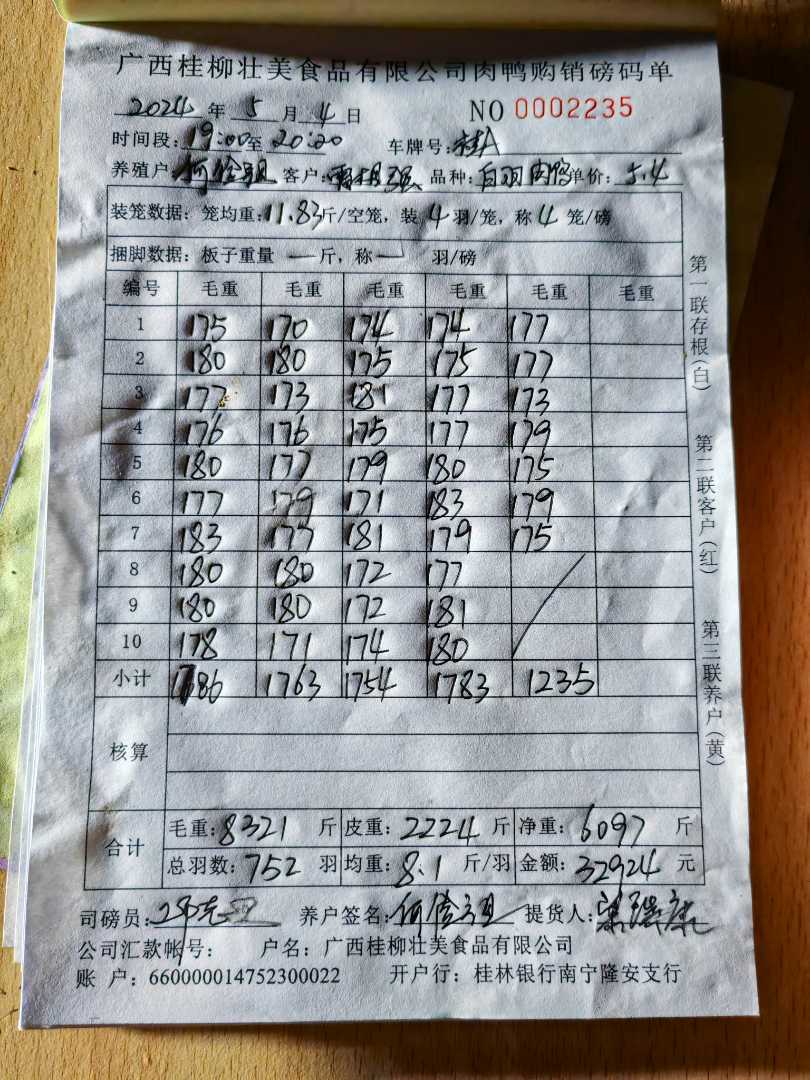 广西桂柳壮美食品有限公司肉鸭购销磅码单
2024年5月4日 NO 0002235
时间段:19:00至20:20 车牌号:桂A
养殖户: 客户: 品种:白羽肉鸭 单价:5.4
装笼数据:笼均重:11.83斤/空笼,装4羽/笼,称4笼/磅
捆脚数据:板子重量 — 斤,称 — 羽/磅
编号 毛重 毛重 毛重 毛重 毛重 毛重
1 175 170 174 174 177
2 180 180 175 175 177
3 177 173 181 177 173
4 176 176 175 177 179
5 180 177 179 180 175
6 177 179 171 183 179
7 183 177 181 179 175
8 180 180 172 177
9 180 180 172 181
10 178 171 174 180
小计 1786 1763 1754 1783 1235
核算
合计 毛重:8321斤 皮重:2224斤 净重:6097斤
总羽数:752羽 均重:8.1斤/羽 金额:32924元
司磅员: 养户签名: 提货人:
公司汇款帐号: 户名:广西桂柳壮美食品有限公司
账 户:660000014752300022 开户行:桂林银行南宁隆安支行
第一联存根(白) 第二联客户(红) 第三联养户(黄)